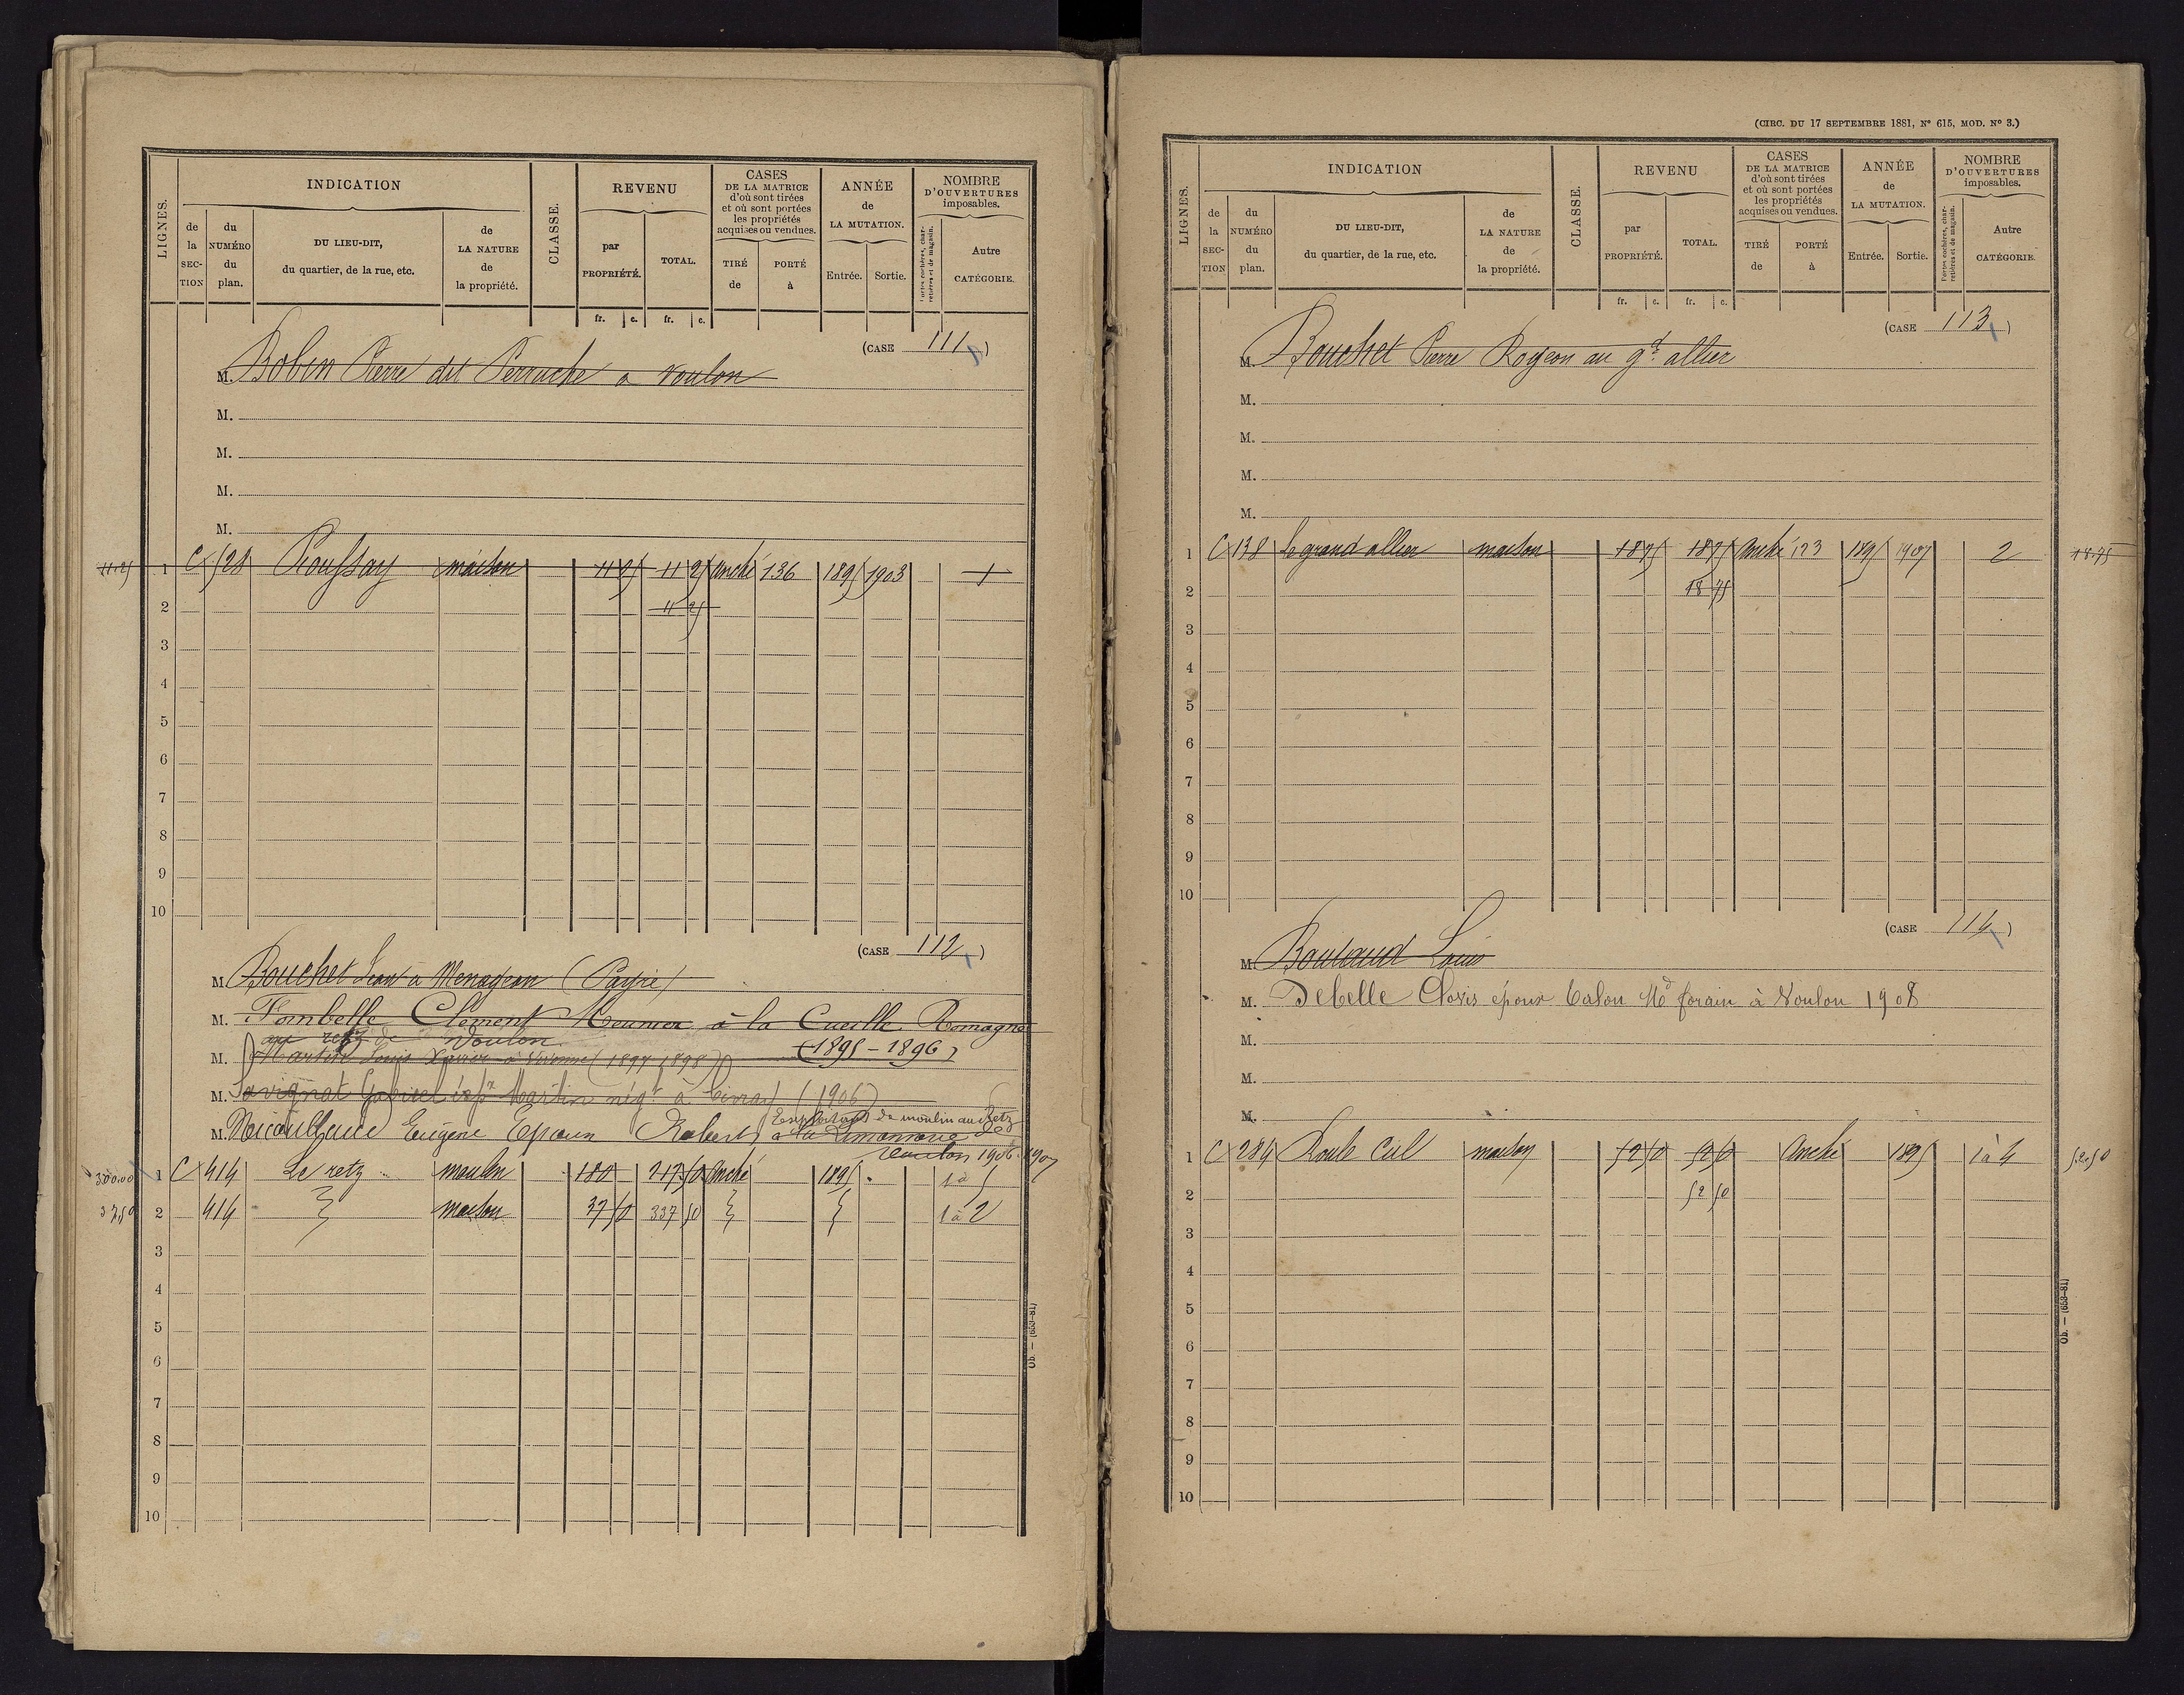 LIGNES.
INDICATION
de la SECTION
du NUMÉRO du plan.
DU LIEU-DIT, du quartier, de la rue, etc.
de LA NATURE de la propriété.
CLASSE.
REVENU
par PROPRIÉTÉ.
TOTAL.
CASES DE LA MATRICE d'où sont tirées et où sont portées les propriétés acquises ou vendues.
TIRÉ de
PORTÉ à
ANNÉE de LA MUTATION.
Entrée.
Sortie.
NOMBRE D'OUVERTURES imposables.
Portes cochères, charretières et de magasin.
Autre CATÉGORIE.
fr. c. fr. c.
(CASE 111)
M. Bobin Pierre dit Perruche a voulon
M.
M.
M.
M.
11.25 1 C 528 maison 11 25 11 25 Anché 136 1895 1903 1
2 11 25
3
4
5
6
7
8
9
10
(CASE 112)
M. Bouchet Jean à Menageon (Payré)
M. Fombelle Clément Meunier à la Cueille Romagne
au retz de Voulon (1895-1896)
M. Martin Louis Xavier à Vivonne (1897 1898)
M. Savignat Gabriel ép. Martin négt à Civray (1906)
M. Eugène Epoux Robert Exploitant de moulin au Retz
Voulon 1906.1907
300.00 1 C 414 Le retz moulin 180 217.50 Anché 1895 1 à 5
37,50 2 414 maison 37 50 337 50 1 à 2
3
4
5
6
7
8
9
10
Ob. — (653-81)
(CIRC. DU 17 SEPTEMBRE 1881, Nº 615, MOD. Nº 3.)
LIGNES.
INDICATION
de la SECTION
du NUMÉRO du plan.
DU LIEU-DIT, du quartier, de la rue, etc.
de LA NATURE de la propriété.
CLASSE.
REVENU
par PROPRIÉTÉ.
TOTAL.
CASES DE LA MATRICE d'où sont tirées et où sont portées les propriétés acquises ou vendues.
TIRÉ de
PORTÉ à
ANNÉE de LA MUTATION.
Entrée.
Sortie.
NOMBRE D'OUVERTURES imposables.
Portes cochères, charretières et de magasin.
Autre CATÉGORIE.
fr. c. fr. c.
(CASE 113)
M. Bouchet Pierre Rogeon au gd allier
M.
M.
M.
M.
1 C 138 Le grand allier maison 18 75 18 75 Anché 123 1895 1907 2 18.75
2 18 75
3
4
5
6
7
8
9
10
(CASE 114)
M. Boutaud Louis
M. Debelle Clovis époux Calon Md forain à Voulon 1908
M.
M.
M.
1 C 284 Roule Cul maison 52 50 52 50 Anché 1895 1 à 4 52.50
2 52 50
3
4
5
6
7
8
9
10
Ob. — (653-81)